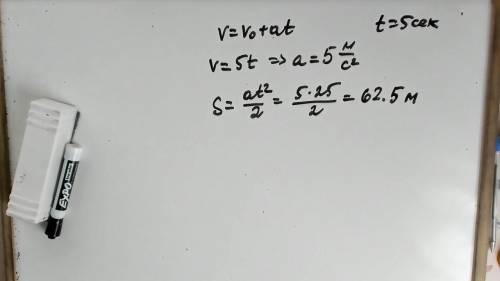 v=v₀+at
t=5сек
v=5t => a=5 м/с²
S= at²/2 = 5·25/2 = 62.5 м
EXPO